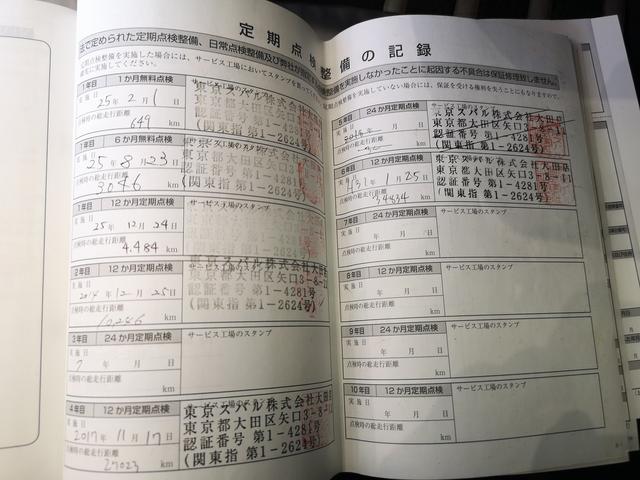 定期点検整備の記録
法で定められた定期点検整備、日常点検整備及び弊社が指定
整備を実施しなかったことに起因する不具合は保証修理致しません。
定期点検整備を実施した場合には、サービス工場においてスタンプを
確実に実施してください。
点検整備を実施していない場合には、保証を受ける権利を失うことにもなりますので、
1年目 1か月無料点検
サービス工場のスタンプ
実施日
25年 2月 1日
点検時の総走行距離
649 km
東京スバル株式会社
東京都大田区矢口
認証番号 第1-
(関東指 第1-2624号)
1年目 6か月無料点検
サービス工場のスタンプ
実施日
25年 8月 23日
点検時の総走行距離
3046 km
東京スバル株式会社
東京都大田区矢口
認証番号 第1-4281号
(関東指 第1-2624号)
1年目 12か月定期点検
サービス工場のスタンプ
実施日
25年 12月 24日
点検時の総走行距離
4,484 km
2年目 12か月定期点検
サービス工場のスタンプ
実施日
2014年 12月 25日
点検時の総走行距離
km
東京スバル株式会社大田
東京都大田区矢口3-8-11
認証番号 第1-4281号
(関東指 第1-2624号)
3年目 24か月定期点検
サービス工場のスタンプ
実施日
年 月 日
点検時の総走行距離
km
4年目 12か月定期点検
実施日
2017年 11月 17日
点検時の総走行距離
27023 km
東京スバル株式会社大田
東京都大田区矢口3-8-11
認証番号 第1-4281号
(関東指 第1-2624号)
5年目 24か月定期点検
実施日
年 月 日
点検時の総走行距離
km
東京スバル株式会社大田
東京都大田区矢口3-8-11
認証番号 第1-4281号
(関東指 第1-2624号)
6年目 12か月定期点検
実施日
H31年 1月 25日
点検時の総走行距離
34834 km
東京スバル株式会社大田
東京都大田区矢口3-8-11
認証番号 第1-4281号
(関東指 第1-2624号)
7年目 24か月定期点検
サービス工場のスタンプ
実施日
年 月 日
点検時の総走行距離
km
8年目 12か月定期点検
サービス工場のスタンプ
実施日
年 月 日
点検時の総走行距離
km
9年目 24か月定期点検
サービス工場のスタンプ
実施日
年 月 日
点検時の総走行距離
km
10年目 12か月定期点検
サービス工場のスタンプ
実施日
年 月 日
点検時の総走行距離
km